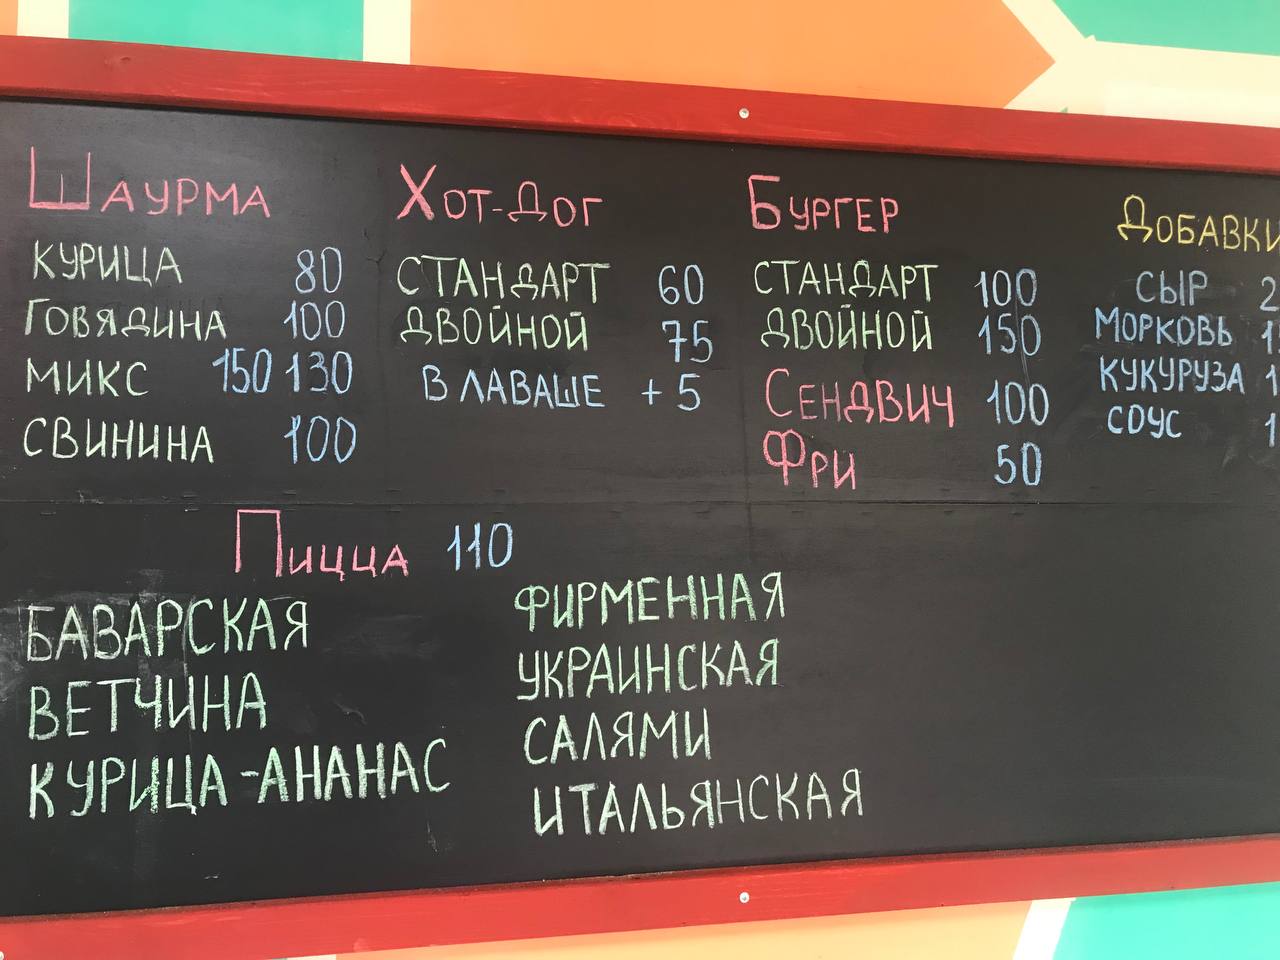 Шаурма
КУРИЦА 80
ГОВЯДИНА 100
МИКС 150 130
СВИНИНА 100
Хот-Дог
СТАНДАРТ 60
ДВОЙНОЙ 75
В ЛАВАШЕ + 5
Бургер
СТАНДАРТ 100
ДВОЙНОЙ 150
Сендвич 100
Фри 50
Добавки
СЫР
МОРКОВЬ
КУКУРУЗА
СОУС
Пицца 110
БАВАРСКАЯ
ВЕТЧИНА
КУРИЦА-АНАНАС
ФИРМЕННАЯ
УКРАИНСКАЯ
САЛЯМИ
ИТАЛЬЯНСКАЯ